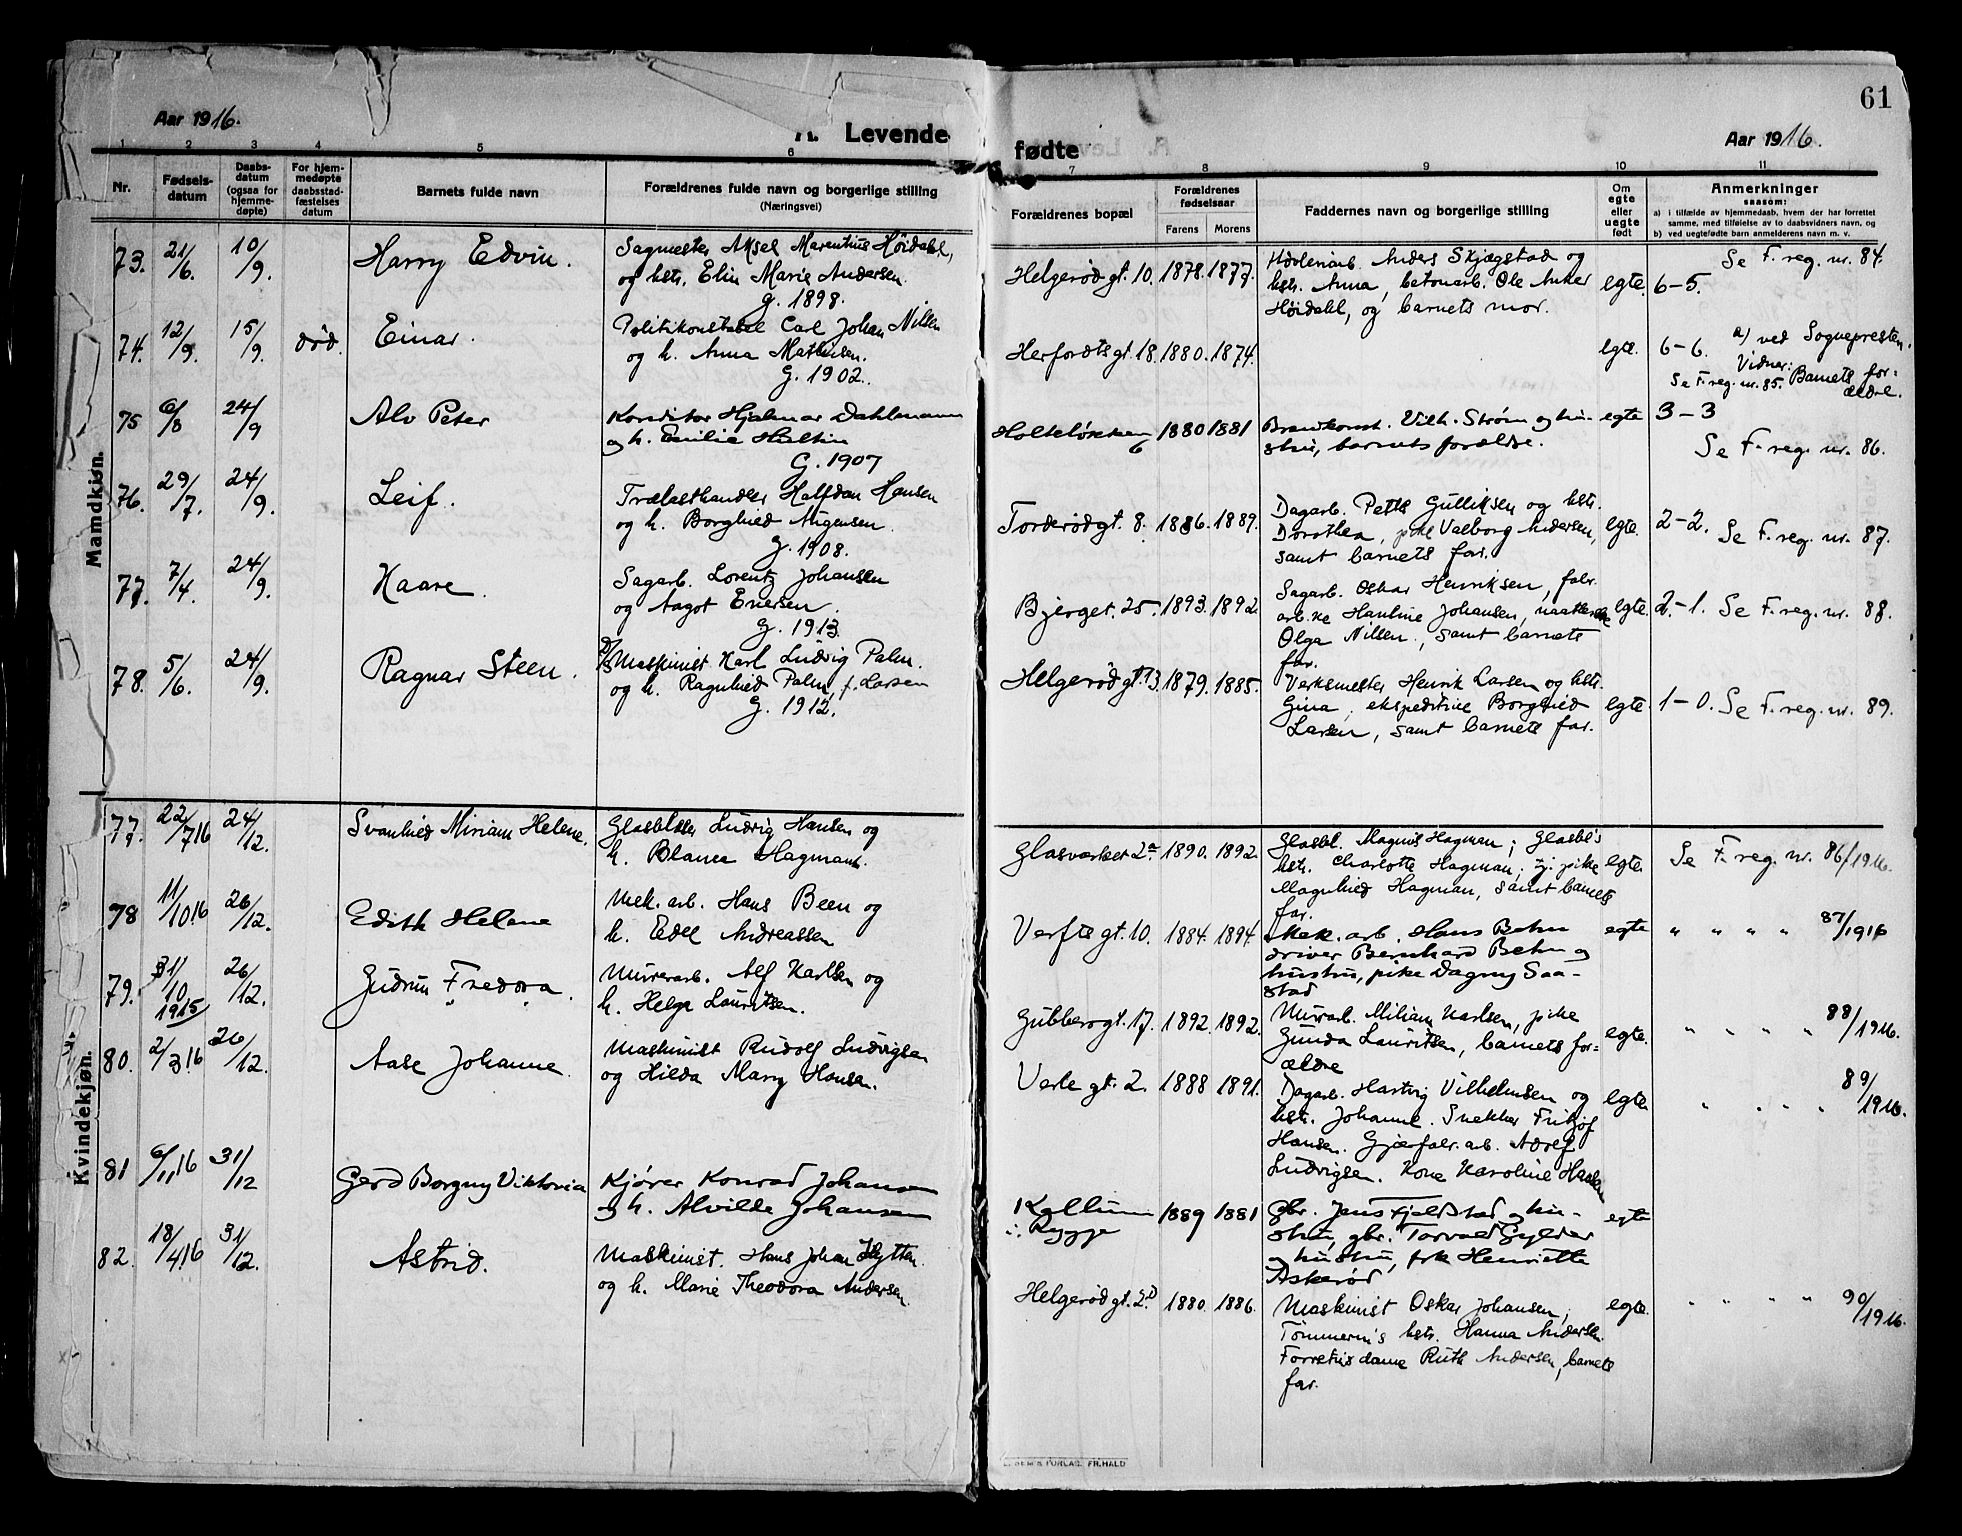 61
Aar 1916.
A. Levende
fødte
Aar 1916.
1 2 3 4 5 6 7 8 9 10 11
Nr.
Fødsels-
datum
Daabs-
datum
(ogsaa for
hjemme-
døpte)
For hjem-
medøpte
daabsstad-
fæstelses
datum
Barnets fulde navn
Forældrenes fulde navn og borgerlige stilling
(Næringsvei)
Forældrenes bopæl
Forældrenes
fødselsaar
Farens Morens
Faddernes navn og borgerlige stilling
Om
egte
eller
uegte
født
Anmerkninger
saasom:
a) i tilfælde av hjemmedaab, hvem der har forrettet
samme, med tilføielse av to daabsvidners navn, og
b) ved uegtefødte barn anmelderens navn m. v.
Mamdkjøn.
73. 21/6. 10/9. Harry Edvin.
Sagmester Aksel Marentius Höidahl,
og hstr. Elin Marie Andersen.
G. 1898.
Helgerødgt. 10. 1878. 1877.
Anders Skjægstad og
hstr. Anna, betonarb. Ole Anker
Höidahl, og barnets mor.
egte. 6-5.
Se F. reg. nr. 84.
74. 12/9. 15/9. død. Einar.
Politikonstabel Carl Johan Nilsen
og h. Anna Mathisen.
G. 1902.
Herfordtsgt. 18. 1880. 1874.
egte. 6-6. a) ved Sognepresten.
Vidner:
Se F. reg. nr. 85. Barnets for-
ældre.
75 6/8 24/9 Alv Peter
Konditor Hjalmar Dahlmann
og h. Emilie Hultin
G. 1907
Holteløkken 6 1880 1881
Brandkonst. Vilh. Strøm og hu-
stru, barnets forældre.
egte 3-3
Se F. reg. nr. 86.
76. 29/7. 24/9. Leif.
Trælasthandler Halfdan Hansen
og h. Borghild Mogensen.
G. 1908.
Torderødgt. 8. 1886. 1889.
Dagarb. Petter Gulliksen og hstr.
Dorothea, pike Valborg Andersen,
samt barnets far.
egte. 2-2. Se F. reg. nr. 87.
77. 7/4. 24/9. Kaare.
Sagarb. Lorentz Johansen
og Aagot Eversen.
G. 1913.
Bjerget. 25. 1893. 1892.
Sagarb. Oskar Henriksen, fabr.
arb.ke Hauline Johansen,
Olga Nilsen, samt barnets
far.
egte. 2-1. Se F. reg. nr. 88.
78. 5/6. 24/9. Ragnar Steen.
Maskinist Karl Ludvig Palm.
og h. Ragnhild Palm, f. Larsen
G. 1912.
Helgerødgt. 13. 1879. 1885.
Verksmester Henrik Larsen og hstr.
Gina, ekspeditrice Borghild
Larsen, samt barnets far.
egte. 1-0. Se F. reg. nr. 89.
Kvindekjøn.
77. 22/7 16 24/12. Svanhild Miriam Helene.
Glasblåser Ludvig Hansen og
h. Blanca Hagmann.
Glasværket 2a 1890. 1892.
Glasbl. Magnus Hagman; Glasbl's
hstr. Charlotte Hagman; pike
Magnhild Hagman, samt barnets
far.
egte. Se F. reg. nr. 86/1916.
78 11/10 16 26/12. Edith Helene
Mek. arb. Hans Been og
h. Edel Andreassen
Verftsgt. 10. 1884. 1894.
Mek. arb. Hans Behn
driver Bernhard Behn og
hustru, pike Dagny Saa-
stad
egte " " " " 87/1916
79. 31/10 1915 26/12. Gudrun Fredora.
Murerarb. Alf Karlsen og
h. Helga Lauritsen.
Gubberogt. 17. 1892. 1892.
Murarb. Miliam Karlsen, pike
Gunda Lauritsen, barnets for-
ældre
egte. " " " " 88/1916.
80. 2/3 16 26/12. Aase Johanne.
Maskinist Rudolf Ludvigsen
og Hilda Marry Hansen.
Verle gt. 2. 1888 1891.
Dagarb. Hartvig Vilhelmsen og
hstr. Johanne. Snekker Fritjof
Hansen. Gjærfabr. arb. Adolf
Ludvigsen. Kone Karoline Hansen
egte. " " " " 89/1916.
81 6/11 16 31/12 Gerd Borgny Viktoria
Kjører Konrad Johansen
og h. Alvilde Johansen
Kallum
i Rygge 1889 1881
gbr. Jens Fjeldstad og hu-
stru, gbr. Torvald Gylder
og hustru, frk Henriette
Askerød
egte
82. 18/4 16 31/12. Astrid.
Maskinist. Hans Johan Hytten.
og h. Marie Theodora Andersen.
Helgerødgt. 2D 1880. 1886.
Maskinist Oskar Johansen;
Tömmerm's hstr. Hanna Andersen.
Forretnis dame Ruth Andersen, barnets
far.
egte. " " " " 90/1916.
FORLAG. FR. HALD